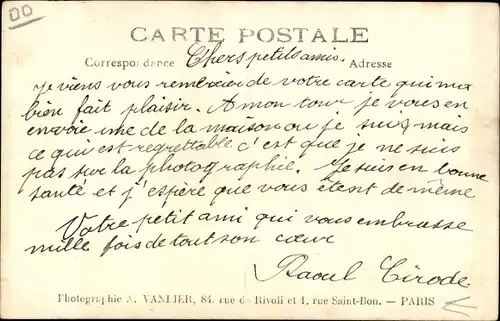 CARTE POSTALE
Correspondance Chers petits amis. Adresse
je viens vous remercier de votre carte qui m'a
bien fait plaisir. A mon tour je vous en
envoie une de la maison ou je suis mais
ce qui est regrettable c'est que je ne suis
pas sur la photographie. Je suis en bonne
santé et j'espère que vous êtes de même
Votre petit ami qui vous embrasse
mille fois de tout son cœur
Raoul Cirode
Photographie A. VANLIER, 84, rue de Rivoli et 1, rue Saint-Bon. — PARIS